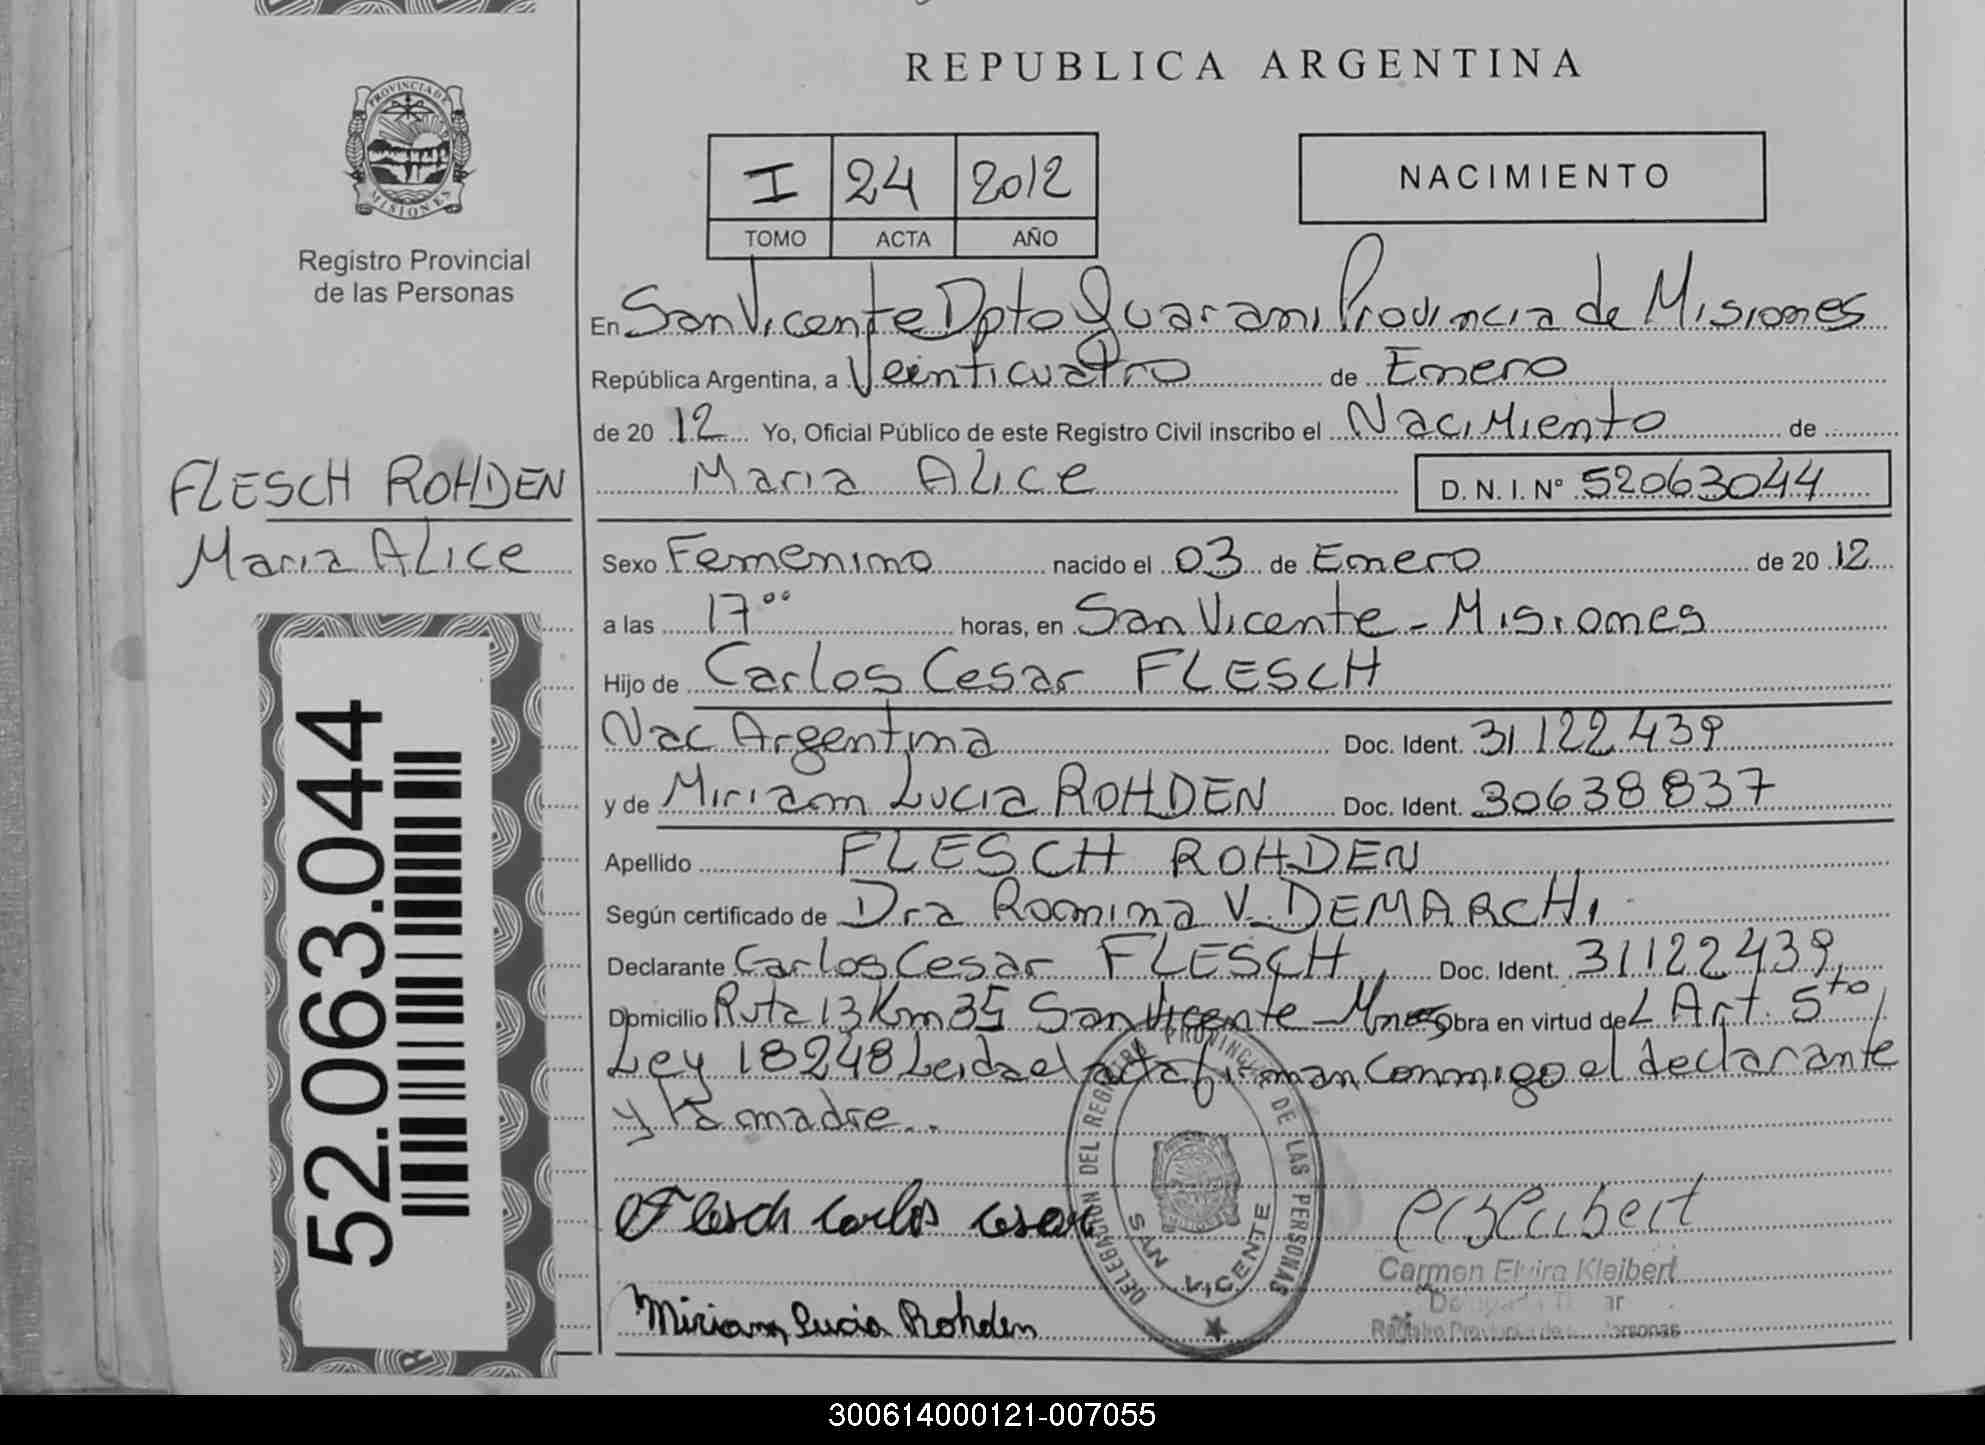 REPUBLICA ARGENTINA
PROVINCIA DE
MISIONES
Registro Provincial
de las Personas
I 24 2012
TOMO ACTA AÑO
NACIMIENTO
En San Vicente Dpto Guarani Provincia de Misiones
República Argentina, a Veinticuatro de Enero
de 2012 Yo, Oficial Público de este Registro Civil inscribo el Nacimiento de
FLESCH ROHDEN
Maria Alice
Maria Alice D. N. I. Nº 52063044
Sexo Femenino nacido el 03 de Enero de 2012
a las 17⁰⁰ horas, en San Vicente - Misiones
Hijo de Carlos Cesar FLESCH
Nac Argentina Doc. Ident. 31122439
y de Miriam Lucia ROHDEN Doc. Ident. 30638837
Apellido FLESCH ROHDEN
Según certificado de Dra Romina V. DEMARCHI
Declarante Carlos Cesar FLESCH, Doc. Ident. 31122439,
Domicilio Ruta 13 Km 35 San Vicente - Mnes Obra en virtud del Art. 5to
Ley 18248 Leida el acta firman conmigo el declarante
y la madre..
52.063.044
Flesch Carlos Cesar
Miriam Lucia Rohden
DELEGACION DEL REGISTRO PROVINCIAL DE LAS PERSONAS
SAN VICENTE
Carmen Elvira Kleibert
Registro Provincial de las Personas
300614000121-007055